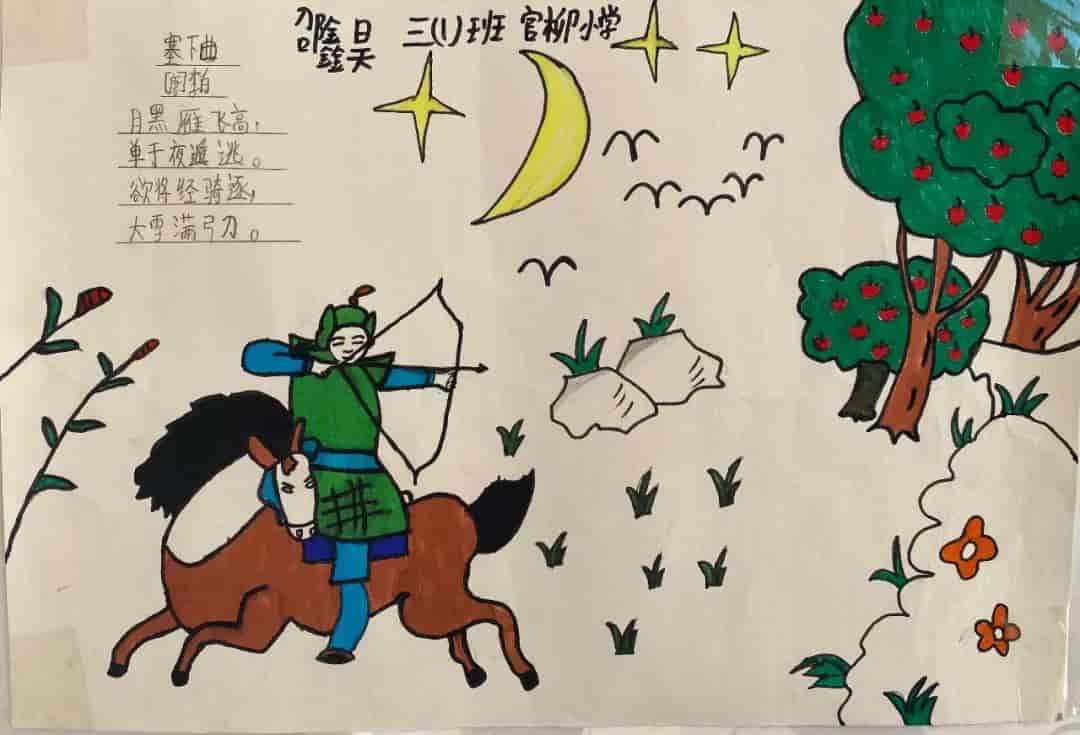 邵鑫昊 三(1)班 官柳小学
塞下曲
李白
月黑雁飞高，
单于夜遁逃。
欲将经骑逐，
大雪满弓刀。